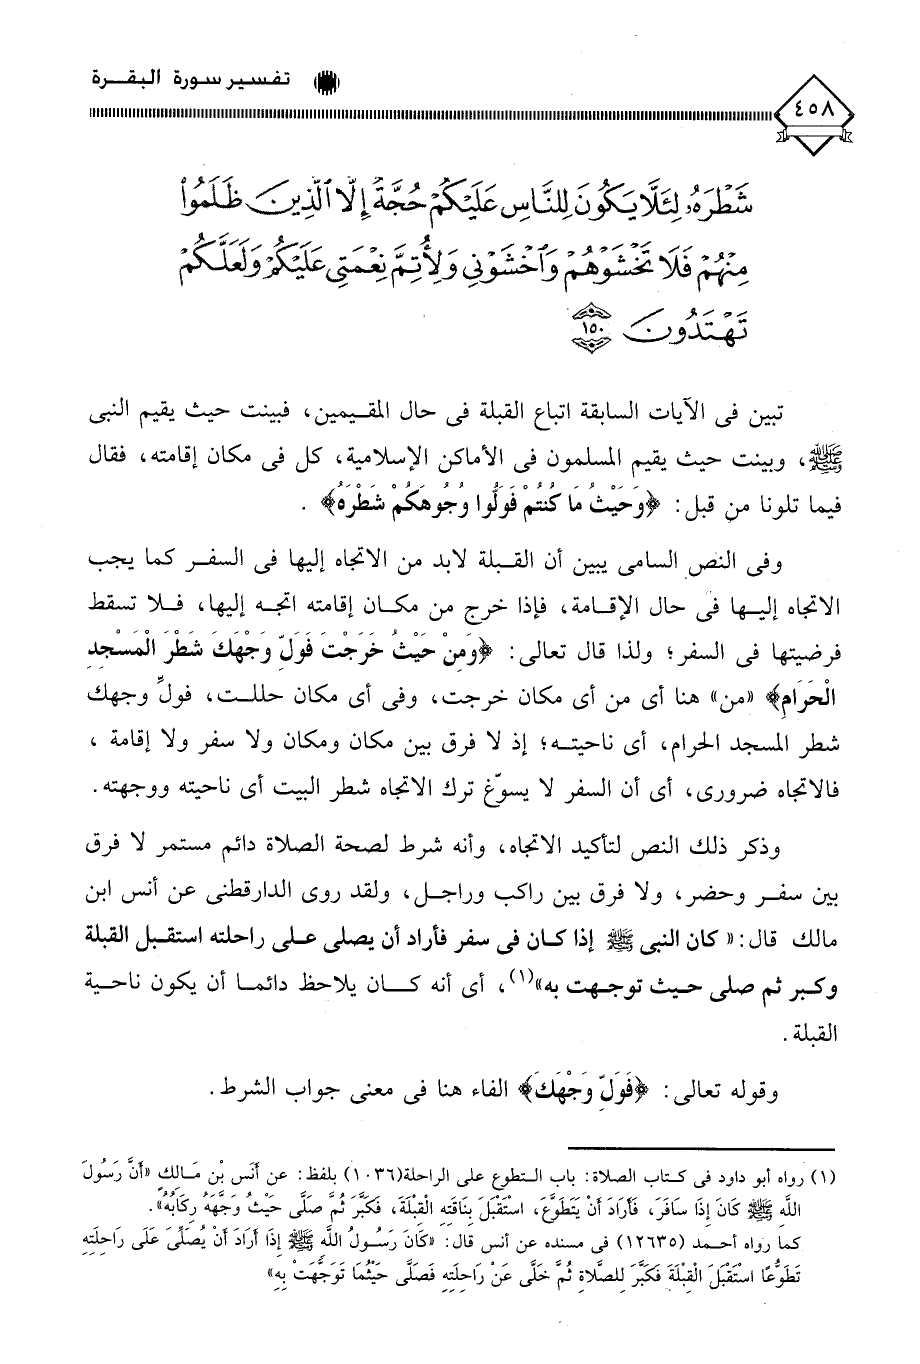 تفسير سورة البقرة
٤٥٨
شَطْرَهُۥ لِئَلَّا يَكُونَ لِلنَّاسِ عَلَيْكُمْ حُجَّةٌ إِلَّا ٱلَّذِينَ ظَلَمُوا۟
مِنْهُمْ فَلَا تَخْشَوْهُمْ وَٱخْشَوْنِى وَلِأُتِمَّ نِعْمَتِى عَلَيْكُمْ وَلَعَلَّكُمْ
تَهْتَدُونَ ١٥٠
تبين فى الآيات السابقة اتباع القبلة فى حال المقيمين، فبينت حيث يقيم النبى
ﷺ، وبينت حيث يقيم المسلمون فى الأماكن الإسلامية، كل فى مكان إقامته، فقال
فيما تلونا من قبل: ﴿وَحَيْثُ مَا كُنتُمْ فَوَلُّوا وُجُوهَكُمْ شَطْرَهُ﴾ .
وفى النص السامى يبين أن القبلة لابد من الاتجاه إليها فى السفر كما يجب
الاتجاه إليها فى حال الإقامة، فإذا خرج من مكان إقامته اتجه إليها، فلا تسقط
فرضيتها فى السفر؛ ولذا قال تعالى: ﴿وَمِنْ حَيْثُ خَرَجْتَ فَوَلِّ وَجْهَكَ شَطْرَ الْمَسْجِدِ
الْحَرَامِ﴾ «من» هنا أى من أى مكان خرجت، وفى أى مكان حللت، فولِّ وجهك
شطر المسجد الحرام، أى ناحيته؛ إذ لا فرق بين مكان ومكان ولا سفر ولا إقامة ،
فالاتجاه ضرورى، أى أن السفر لا يسوّغ ترك الاتجاه شطر البيت أى ناحيته ووجهته.
وذكر ذلك النص لتأكيد الاتجاه، وأنه شرط لصحة الصلاة دائم مستمر لا فرق
بين سفر وحضر، ولا فرق بين راكب وراجل، ولقد روى الدارقطنى عن أنس ابن
مالك قال: « كان النبى ﷺ إذا كان فى سفر فأراد أن يصلى على راحلته استقبل القبلة
وكبر ثم صلى حيث توجهت به»(١)، أى أنه كان يلاحظ دائما أن يكون ناحية
القبلة .
وقوله تعالى: ﴿فَوَلِّ وَجْهَكَ﴾ الفاء هنا فى معنى جواب الشرط.
(١) رواه أبو داود فى كتاب الصلاة: باب التطوع على الراحلة(١٠٣٦) بلفظ: عن أَنَس بْنِ مَالِكٍ «أَنَّ رَسُولَ
اللَّهِ ﷺ كَانَ إِذَا سَافَرَ، فَأَرَادَ أَنْ يَتَطَوَّعَ، اسْتَقْبَلَ بِنَاقَتِهِ الْقِبْلَةَ، فَكَبَّرَ ثُمَّ صَلَّى حَيْثُ وَجَّهَهُ رِكَابُهُ».
كما رواه أحمد (١٢٦٣٥) فى مسنده عن أنس قال: «كَانَ رَسُولُ اللَّهِ ﷺ إِذَا أَرَادَ أَنْ يُصَلِّىَ عَلَى رَاحِلَتِهِ
تَطَوُّعًا اسْتَقْبَلَ الْقِبْلَةَ فَكَبَّرَ لِلصَّلاةِ ثُمَّ خَلَّى عَنْ رَاحِلَتِهِ فَصَلَّى حَيْثُمَا تَوَجَّهَتْ بِهِ»